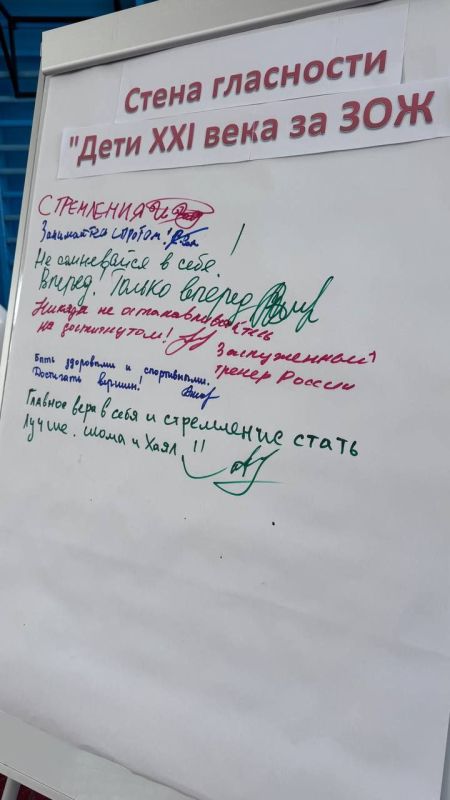 Стена гласности
"Дети XXI века за ЗОЖ
СТРЕМЛЕНИЯ
Заниматся спортом!
Не сомневайся в себе!
Вперед! Только вперед
Никогда не останавливайтесь
на достигнутом!
Заслуженный
тренер России
Быть здоровыми и спортивными.
Достигать вершин!
Главное вера в себя и стремление стать
Лучше. и Хаял !!